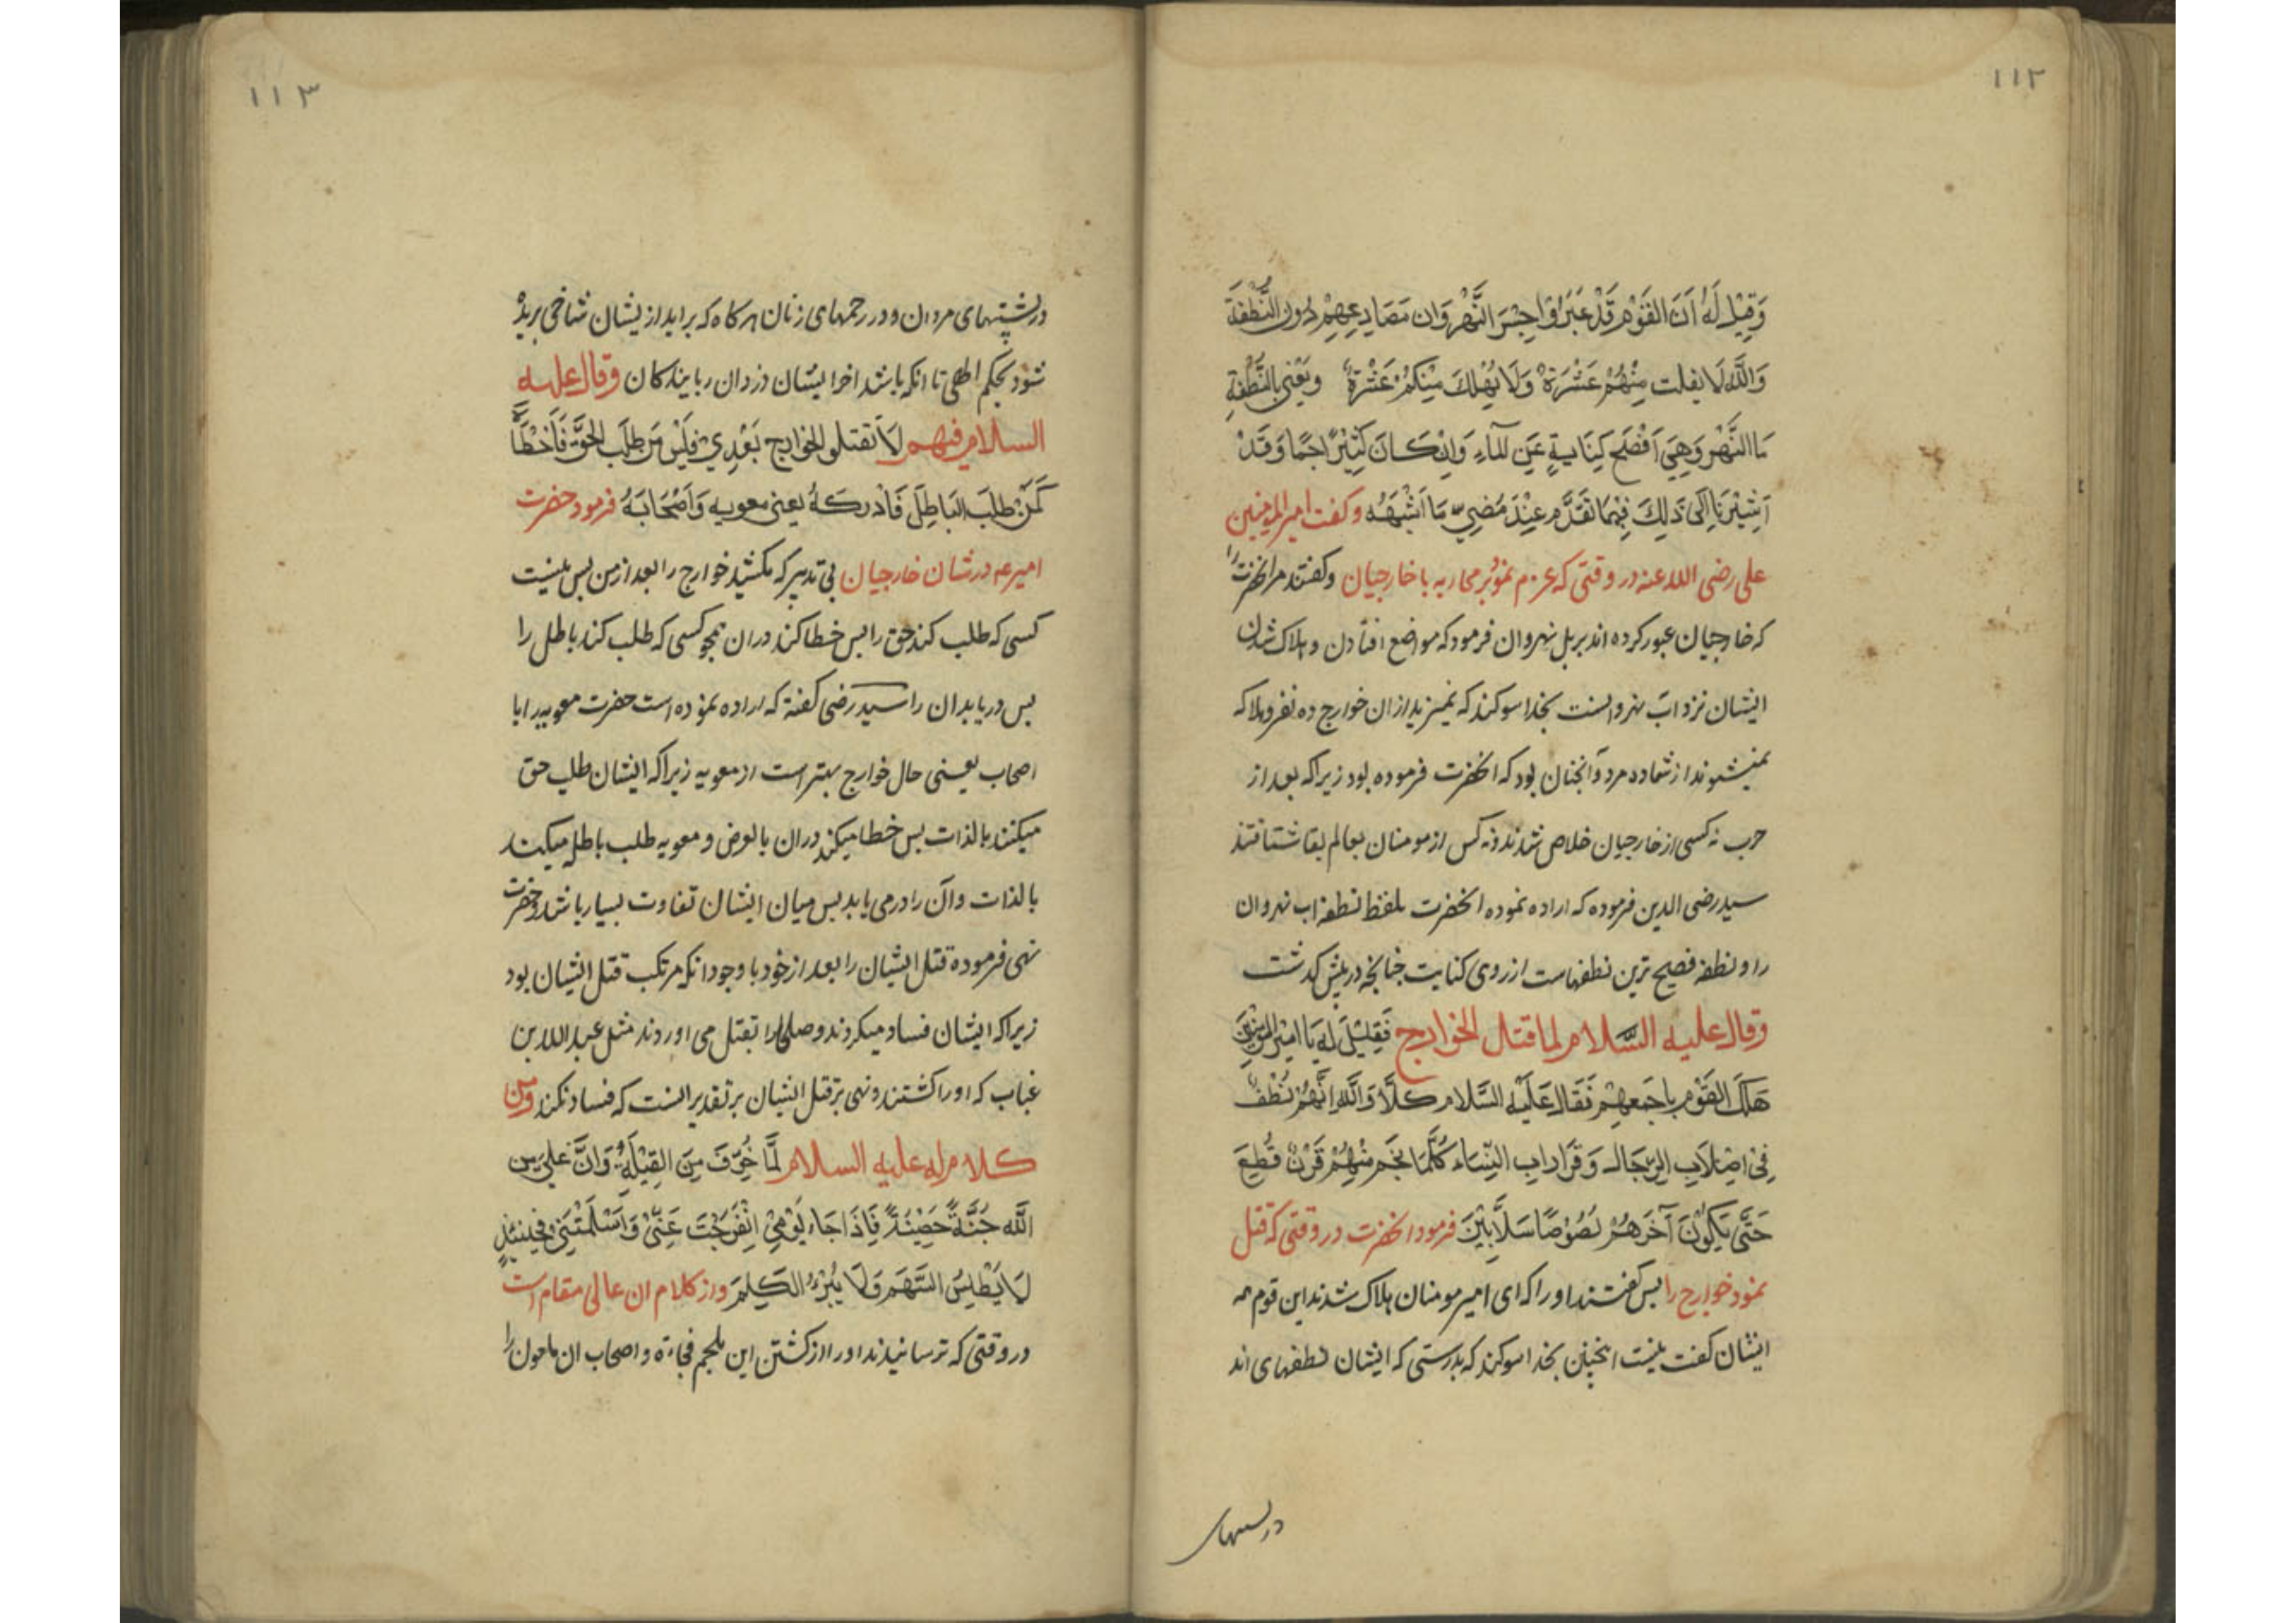 ۱۱۲
وَقِيْلَ لَهُ اَنَ القَوْمَ قَدْ عَبَرُوْا جِسْرَ النَّهْرَوَان مَصَارِعِهِمْ دُونَ النُّطْفَةِ
وَاللَّهِ لَا يفلت مِنْهُمْ عَشْرَةٌ وَلَا يُهْلِكَ مِنْكُمْ عَشْرَةٌ وَيَعْنِي بِالنُّطْفَةِ
مَاالنَّهْر وَهِيَ اَفْصَح كِنَايةٍ عَنِ المآءِ وَاِنْ كَانَ كَثِيْرًا جَمًّا وَقَدْ
اَشَرْنَا اِلَى ذَلِكَ فِيْمَا تَقَدَّم عِنْدَ مُضِيِّ مَا اَشْبَهَهُ وكفت امير المومنين
على رضى الله عنه در وقتى كه عزم نمود بر محاربه با خارجيان وكفتند مر انحضرت را
كه خارجيان عبور كرده اند بر پل نهروان فرمود كه مواضع افتادن و هلاك شدن
ايشان نزد اب نهروانست بخدا سوكند كه نميرند از ان خوارج ده نفر وهلاك
نميشوند از شما ده مرد وآنچنان بود كه انحضرت فرموده بود زيراكه بعد از
حرب نه كسى از خارجيان خلاص شدند ونه كس از مومنان بعالم بقا شتافتند
سيد رضى الدين فرموده كه اراده نموده انحضرت بلفظ نطفه اب نهروان
را و نطفه فصيح ترين نطفهاست از روى كنايت چنانچه در پيش كذشت
وقال عليه السَّلام لما قتل الخوارج فَقِيْلَ لَهُ يَا اَمِيْرَ المُؤْمِنِيْنَ
هَلَكَ القَوْم بِاَجَمعِهِمْ فَقَالَ عَلَيْهِ السَّلام كَلَّا وَاللَّهِ اِنَّهُمْ نُطَفٌ
فِيْ اَصْلَابِ الرِّجَال وَقَرَارَابِ النِّسَاء كُلَّمَا نَجَم مِنْهُمْ قَرْنٌ قُطِعَ
حَتَّى يَكُوْنَ آخَرَهُمْ لَصُوْصًا سَلَّابِيْنَ فرمود انحضرت در وقتى كه قتل
نمود خوارج را پس كفتند او را كه اى امير مومنان هلاك شدند اين قوم همه
ايشان كفت نيست انچنين بخدا سوكند كه بدرستى كه ايشان نطفهاى اند
در پشتهاى
۱۱۳
در پشتهاى مردان و در رحمهاى زنان هركاه كه برايد از يشان شاخى بريده
شود بحكم الهى تا انكه باشد اخر ايشان دزدان ربايندكان وقال عليه
السلام فيهم لَا تقتلو الخوارج بَعْدِيْ فَلَيْسَ مَن طَلَبَ الحَقَّ فَاَخْطَأَ
كَمَنْ طَلَبَ البَاطِلَ فَاَدْرَكَهُ يعنى معويه وَاَصْحَابَهُ فرمود حضرت
امير عه در شان خارجيان بى تدبير كه مكشيد خوارج را بعد از من پس نيست
كسى كه طلب كند حق را پس خطا كند در ان همچو كسى كه طلب كند باطل را
پس دريابد ان را سيد رضى كفته كه اراده نموده است حضرت معويه را با
اصحاب يعنى حال خوارج بهتر است از معويه زيراكه ايشان طلب حق
ميكنند بالذات پس خطا ميكند در ان بالعرض و معويه طلب باطل ميكند
بالذات و آن را در مى يابد پس ميان ايشان تفاوت بسيار باشد وحضرت
نهى فرموده قتل ايشان را بعد از خود با وجود انكه مرتكب قتل ايشان بود
زيراكه ايشان فساد ميكردند وصلحا را بقتل مى اوردند مثل عبد الله بن
خباب كه او را كشتند ونهى بر قتل ايشان بر تقدير انست كه فساد نكنند ومن
كلام له عليه السلام لَمَّا خُوِّفَ مِنَ الغِيْلَةِ وَاِنَّ عَلَيَّ مِن
اللَّه جُنَّةً حَصِيْنَةً فَاِذَا جَاءَ يَوْمِيْ اِنْفَرَجَتْ عَنِّيْ وَاَسْلَمَتْنِيْ فحينئذٍ
لَا يَطِيْشُ السَّهَم وَلَا يُبْرَءُ الكَلِمَ واز كلام ان عالى مقام است
در وقتى كه ترسانيدند او را از كشتن ابن ملجم فجاءة و اصحاب ان ملعون را